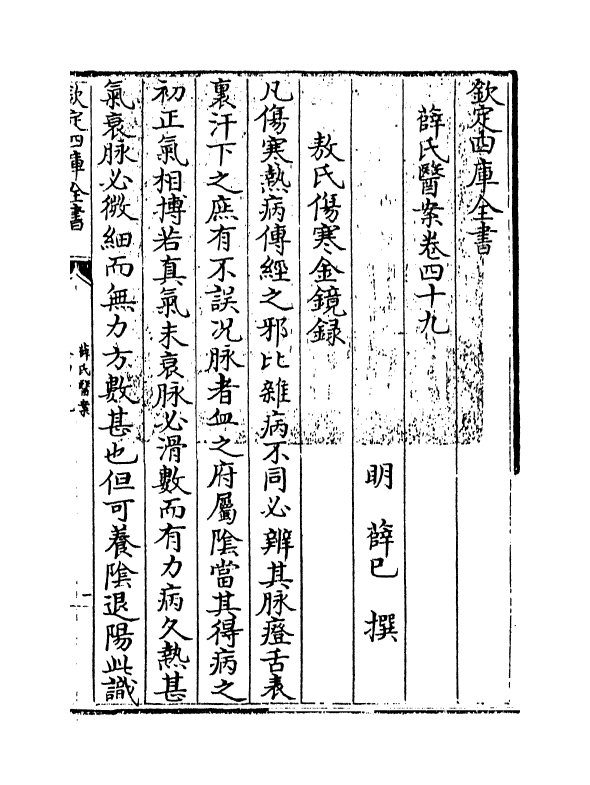 欽定四庫全書
薛氏醫案卷四十九
明 薛已 撰
敖氏傷寒金鏡録
凡傷寒熱病傳經之邪比雜病不同必辨其脉證舌表
裏汗下之庶有不誤况脉者血之府屬隂當其得病之
初正氣相搏若真氣未衰脉必滑數而有力病久熱甚
氣衰脉必微細而無力方數甚也但可養隂退陽此識
欽定四庫全書
薛氏醫案